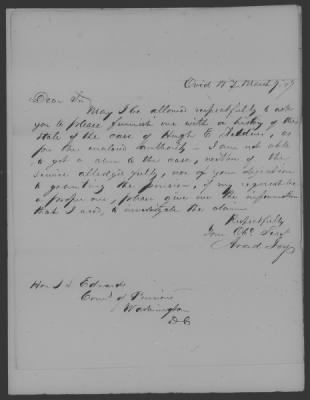 Ovid N.Y. March 9. 49
Dear Sir
May I be allowed respectfully to ask
you to please furnish me with a history of the
state of the case of Hugh E. as
per the enclosed authority – I am not able
to get a clue to the case, neither of the
service alledged fully, nor of your objections
to granting the pension, if my request be
a proper one, please give me the information
that I need, to investigate the claim
Respectfully
Your Obt. Servt
Arad Joy
Hon. J L Edwards
Comr. of Pensions
Washington
D C